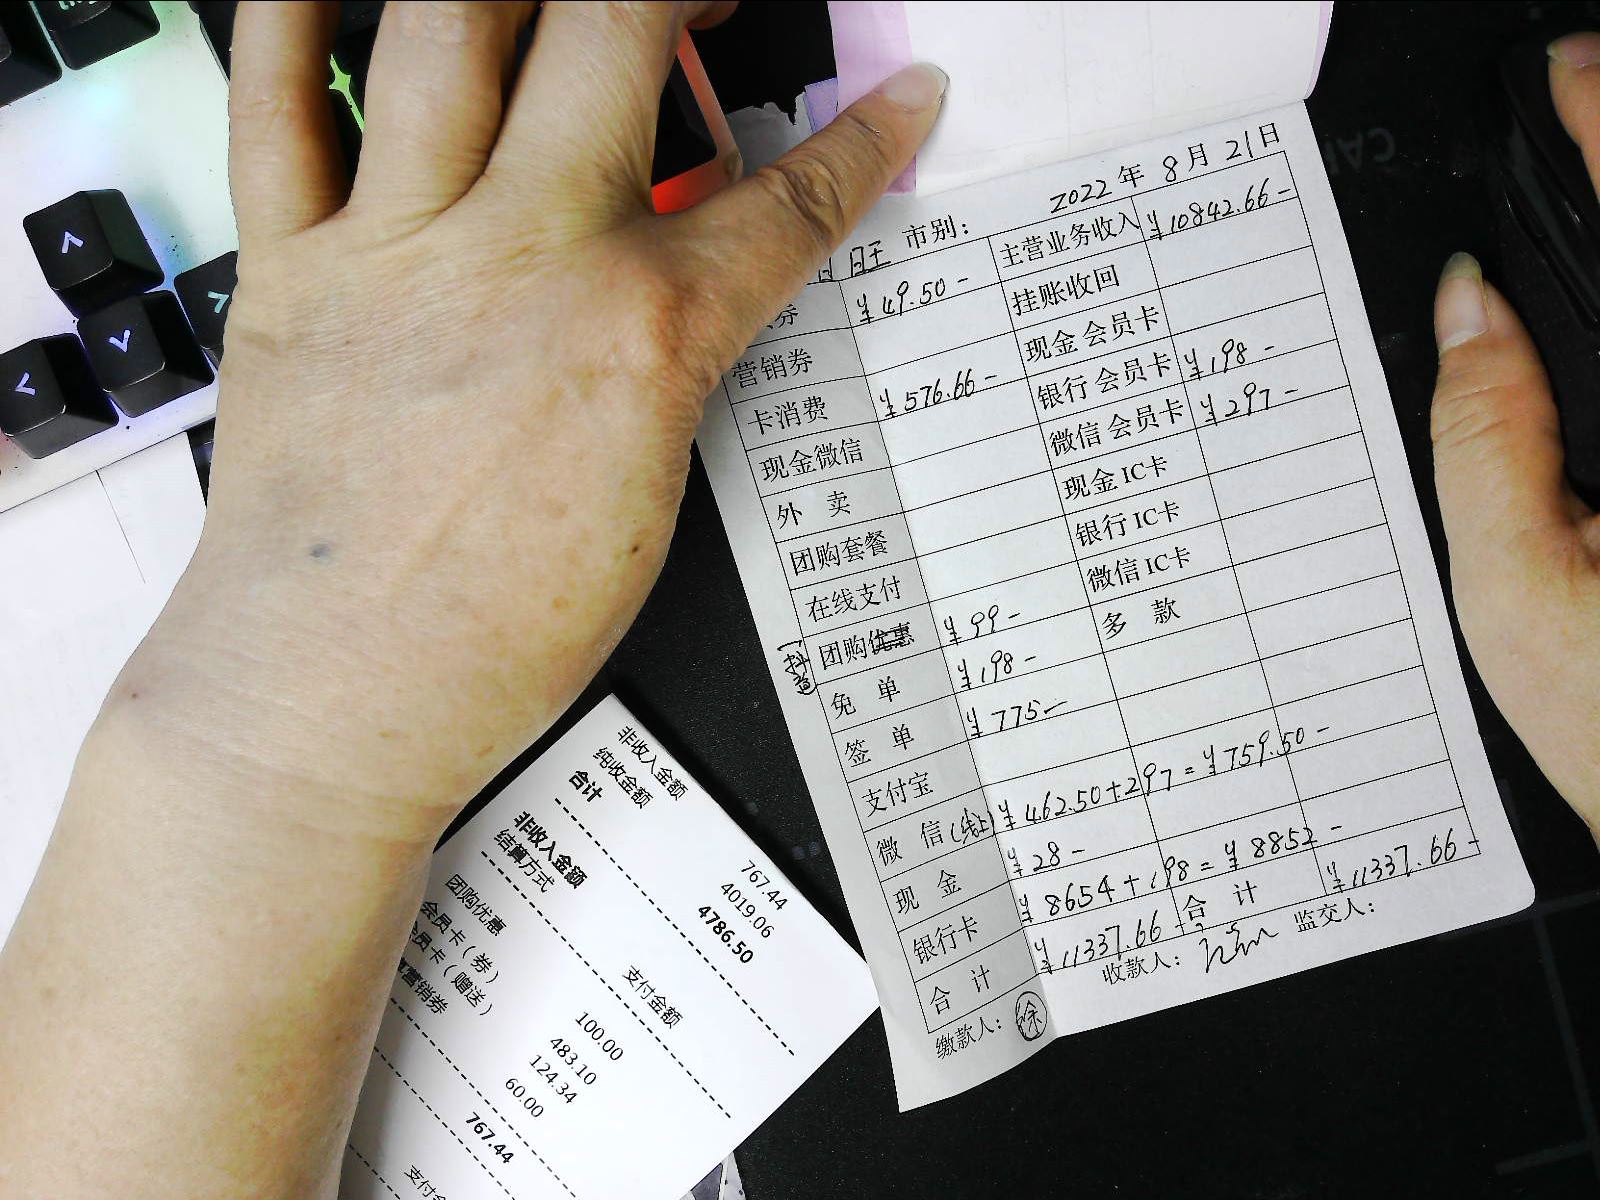 2022 年 8 月 21 日
日 日子 市别：
券 ¥49.50 - 主营业务收入 ¥10842.66 -
营销券 挂账收回
卡消费 ¥576.66 - 现金 会员卡
现金微信 银行 会员卡 ¥198 -
外 卖 微信 会员卡 ¥297 -
团购套餐 现金 IC卡
在线支付 银行 IC卡
抖音 团购优惠 ¥99 - 微信 IC卡
免 单 ¥198 - 多 款
签 单 ¥775 -
支付宝
微 信(线上) ¥462.50+297 = ¥759.50 -
现 金 ¥28 -
银行卡 ¥8654 + 198 = ¥8852 -
合 计 ¥11337.66 - 合 计 ¥11337.66 -
缴款人： 徐 收款人： 监交人：
非收入金额 767.44
纯收金额 4019.06
合计 4786.50
非收入金额
结算方式 支付金额
团购优惠 100.00
会员卡（券） 483.10
会员卡（赠送） 124.34
营销券 60.00
767.44
支付金